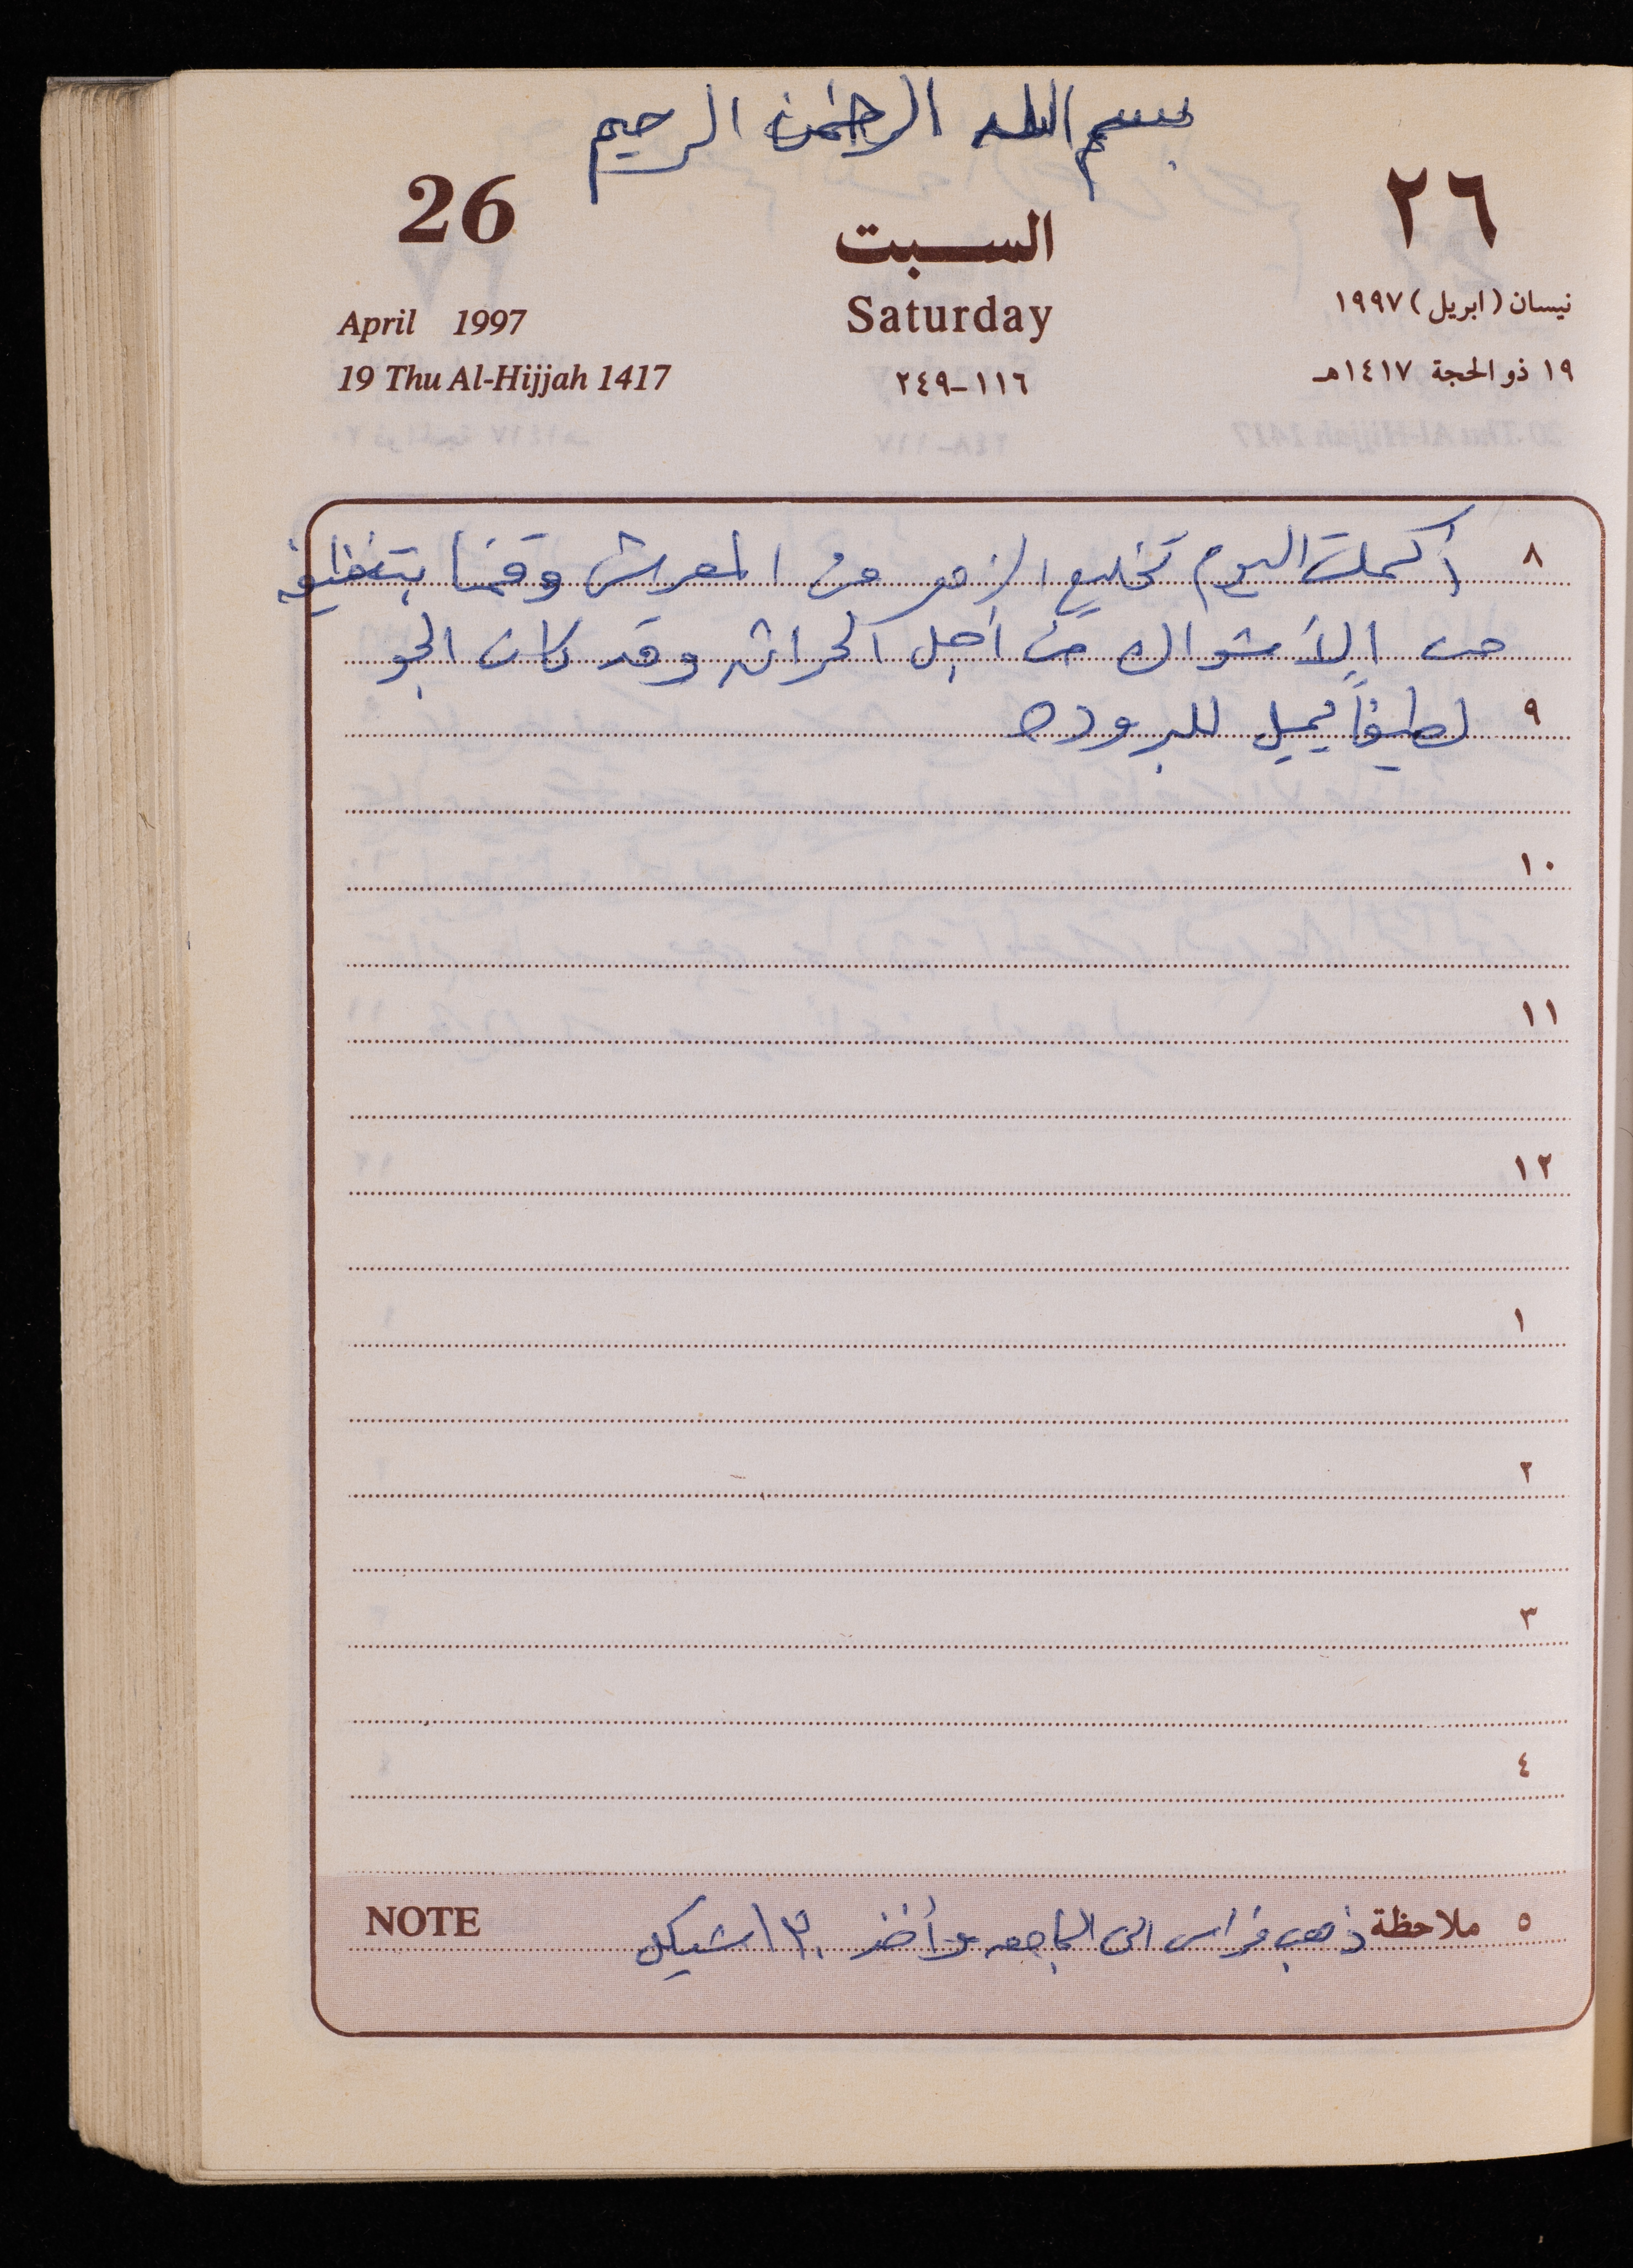 بسم الله الرحمن الرحيم
26 السبت ٢٦
April 1997 Saturday نيسان (ابريل) ١٩٩٧
19 Thu Al-Hijjah 1417 ١١٦-٢٤٩ ١٩ ذو الحجة ١٤١٧هـ
٨ أكملت اليوم تخليع الزهر من المعرش وقمنا بتنظيفه
من الأشواك من أجل الحراثه وقد كان الجو
٩ لطيفاً يميل للبروده
١٠
١١
١٢
١
٢
٣
٤
٥ ملاحظة ذهب فراس الى الجامعه وأخذ شيكل NOTE